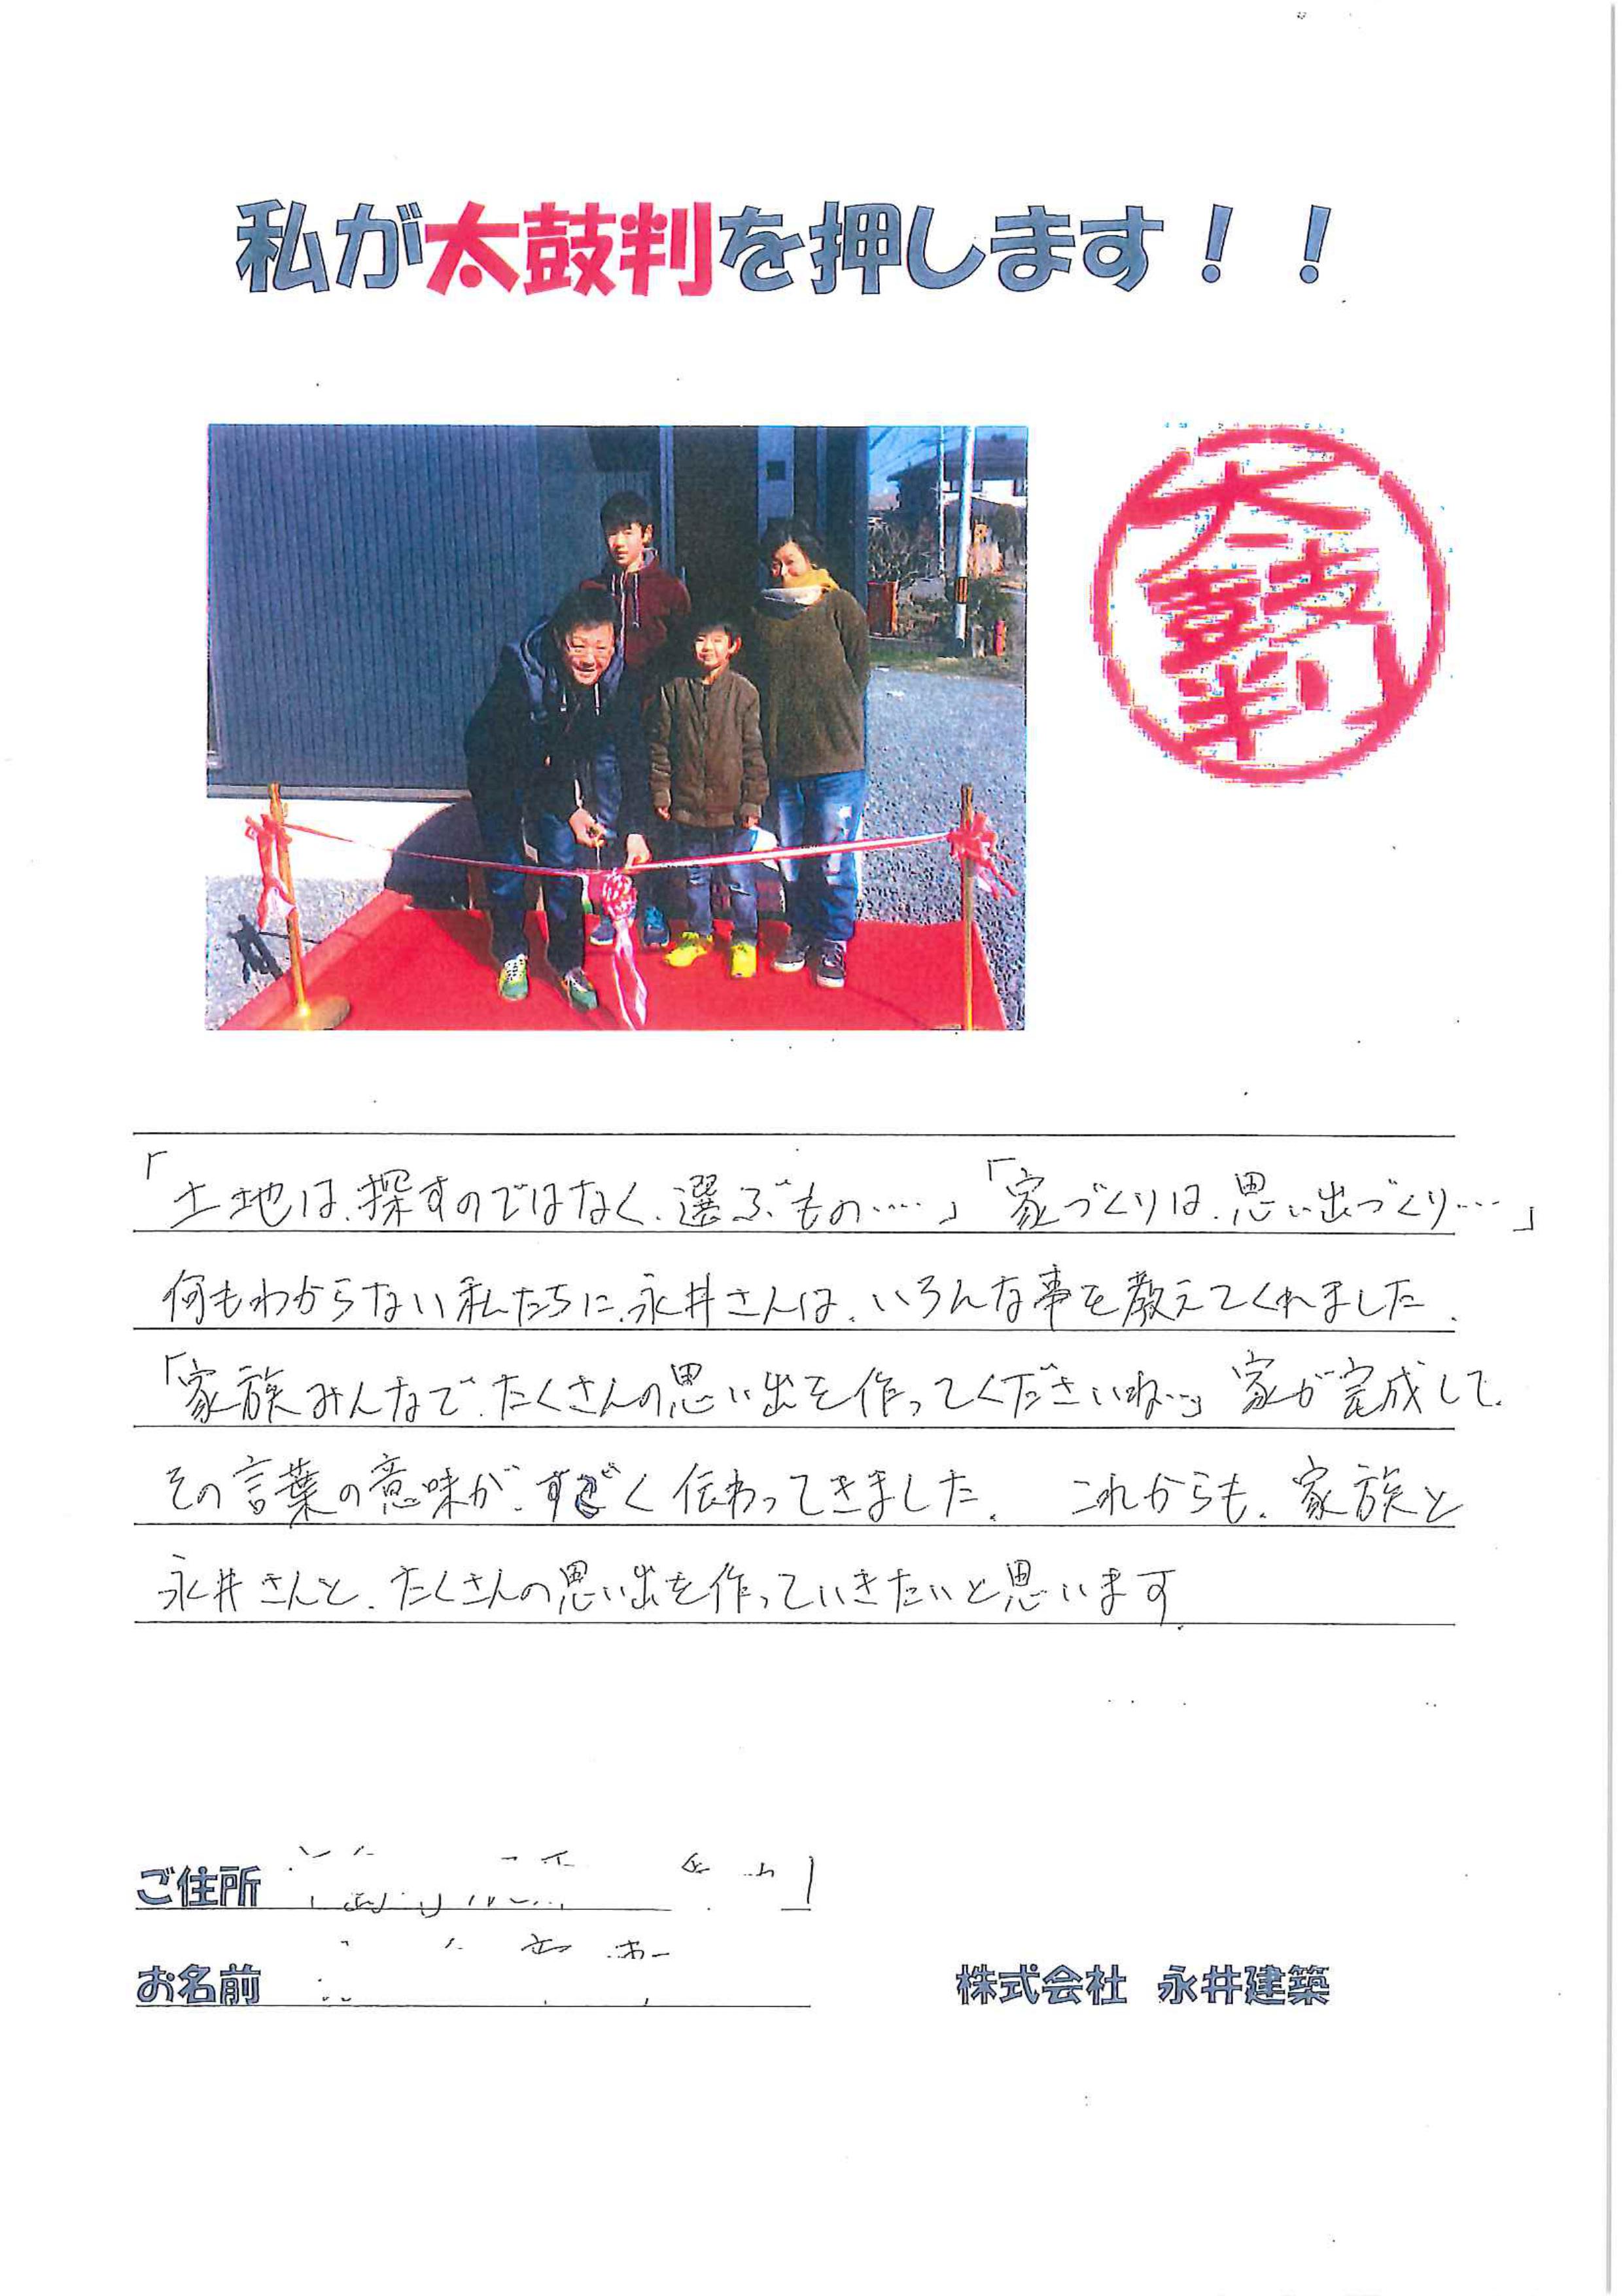 私が太鼓判を押します！！
太鼓判
「土地は、探すのではなく、選ぶもの……」「家づくりは、思い出づくり……」
何もわからない私たちに、永井さんは、いろんな事を教えてくれました。
「家族みんなで、たくさんの思い出を作ってくださいね…」家が完成して、
その言葉の意味が、すごく伝わってきました。これからも、家族と
永井さんと、たくさんの思い出を作っていきたいと思います。
ご住所
お名前
株式会社 永井建築